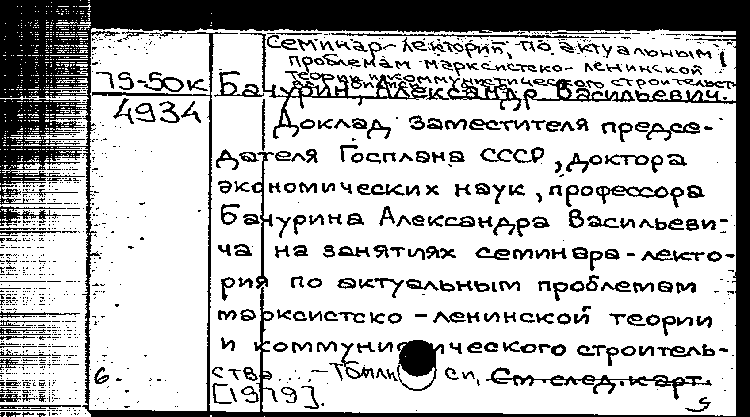 Семинар-лекторий, по актуальным
проблемам марксистско-ленинской
теории и коммунистического строительст
79-50к Бачурин, Александр Васильевич.
4934 Доклад заместителя предсе-
дателя Госплана СССР, доктора
экономических наук, профессора
Бачурина Александра Васильеви-
ча на занятиях семинара-лекто-
рия по актуальным проблемам
марксистско-ленинской теории
и коммунистического строитель-
6. ства... - Тбилиси, См. след. карт.
[1979].